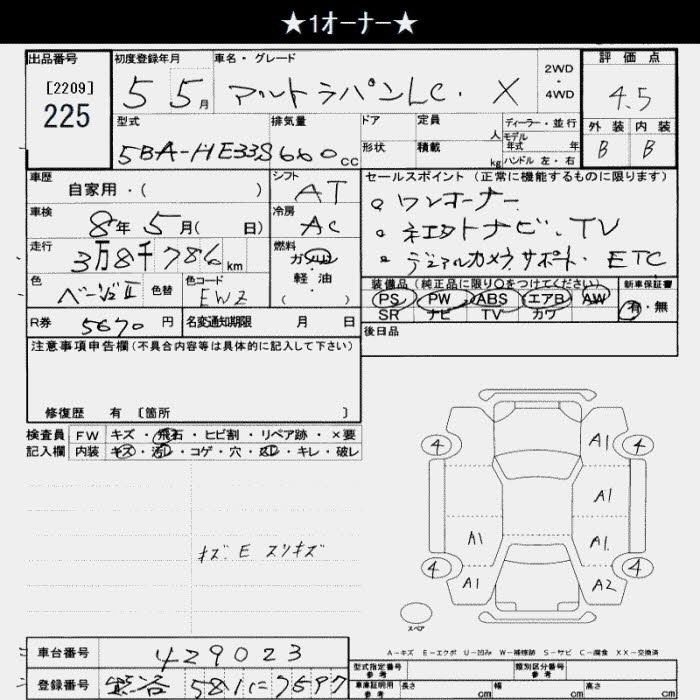 ★1オーナー★
出品番号
[2209]
225
初度登録年月
5 5月
車名・グレード
アルトラパンLC・X
2WD
・
4WD
評価点
4.5
外装 内装
B B
型式
5BA-HE33S
排気量
660cc
ドア
形状
定員
人
積載
kg
ディーラー・並行
モデル
年式 年
ハンドル 左・右
車歴
自家用・( )
シフト
AT
車検
8年5月( 日)
冷房
AC
走行
3万8千786km
燃料
ガソリン
・
軽油
( )
色
ベージュII
色替
色コード
EWZ
R券
5670円
名変通知期限 月 日
セールスポイント(正常に機能するものに限ります)
。ワンオーナー
。ナビ・TV
・カメラサポート・ETC
装備品(純正品に限り○をつけてください)
PS PW ABS エアB AW
SR ナビ TV カワ
新車保証書
有・無
後日品
注意事項申告欄(不具合内容等は具体的に記入して下さい)
修復歴 有 [箇所 ]
検査員
記入欄
FW キズ・飛石・ヒビ割・リペア跡・×要
内装 キズ・汚レ・コゲ・穴・スレ・キレ・破レ
キズ E スリキズ
4 A1 4
A1
A1 A1
4 4
A1 A2
スペア
A-キズ E-エクボ U-凹み W-補修跡 S-サビ C-腐食 XX-交換済
車台番号
429023
登録番号
581
型式指定番号
参考
類別区分番号
参考
車庫証明用
参考
長さ cm 幅 cm 高さ cm